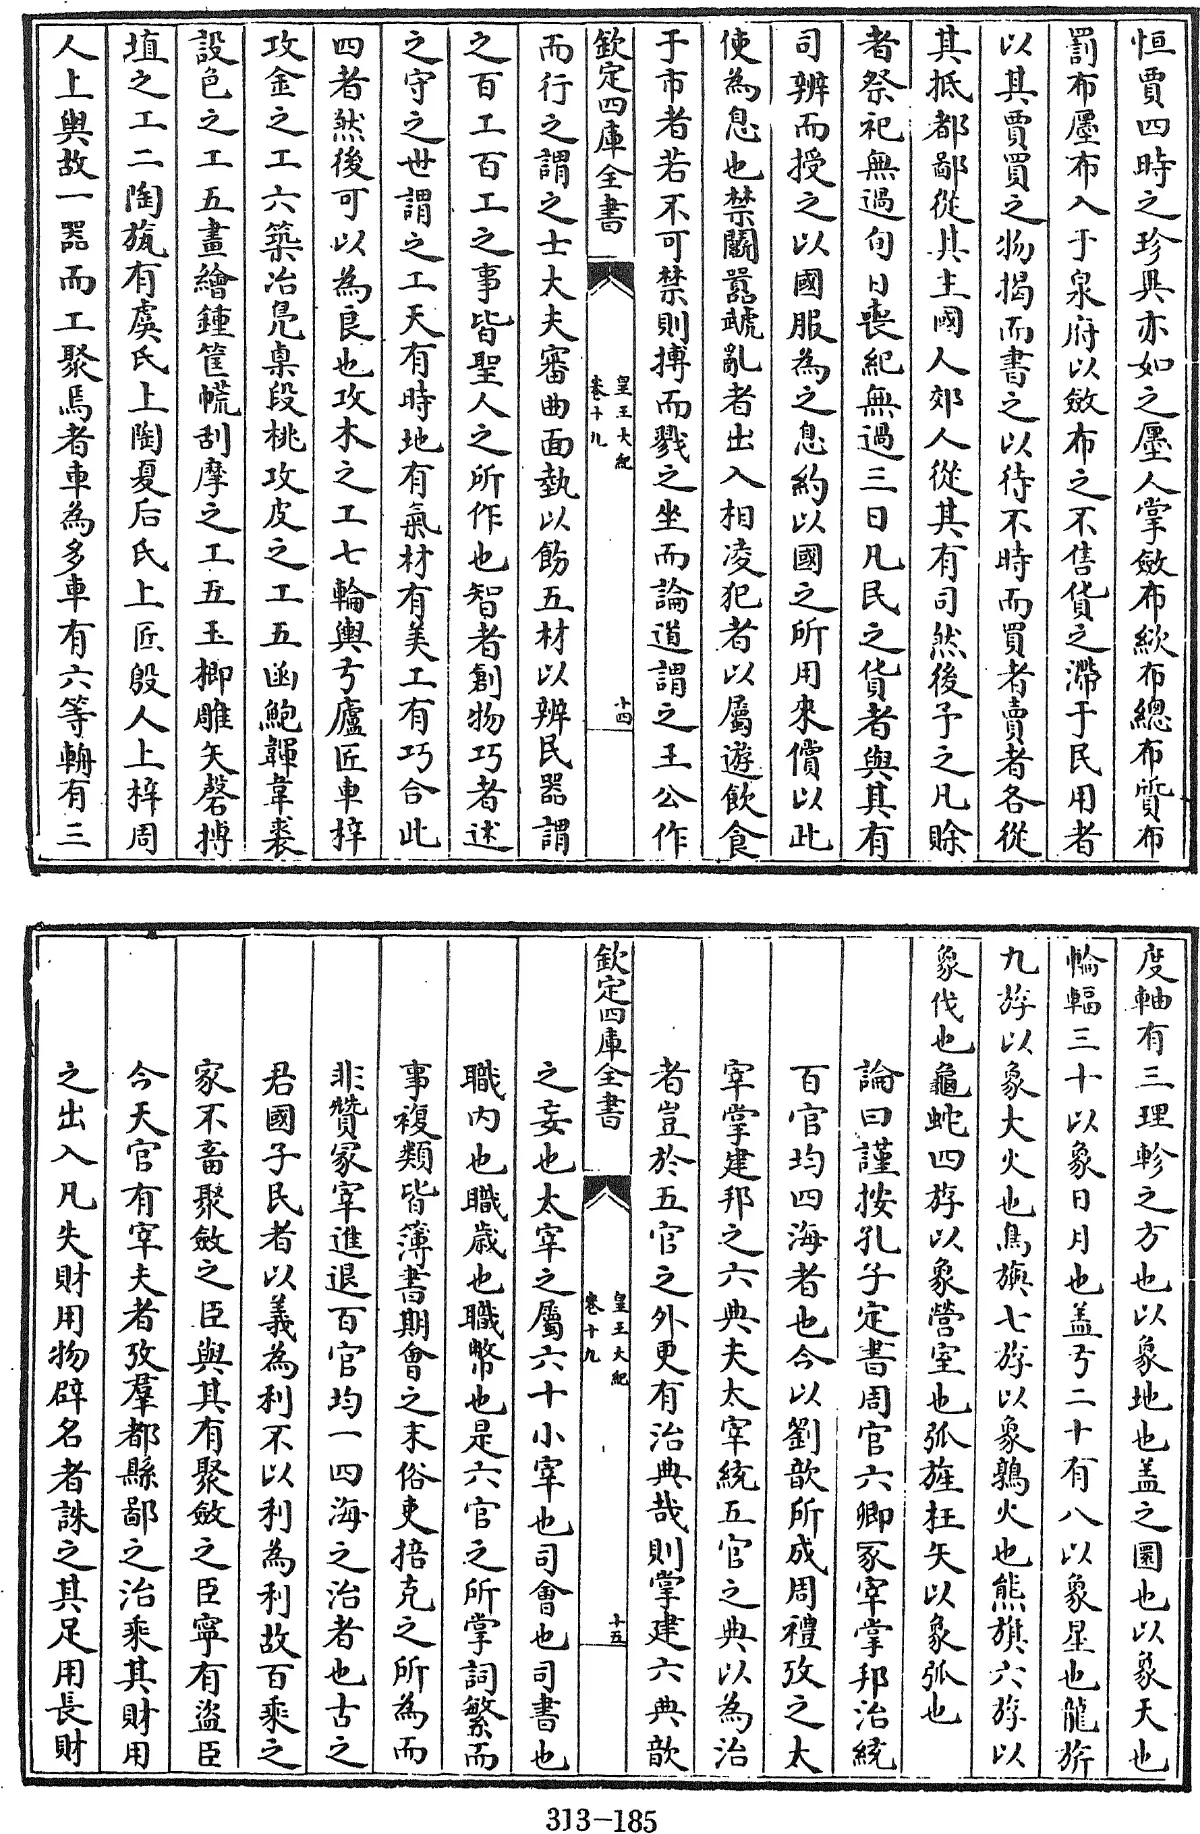 恒賈四時之珍異亦如之廛人掌斂布絘布總布質布
罰布廛布入于泉府以斂布之不售貨之滯于民用者
以其賈買之物揭而書之以待不時而買者賣者各從
其抵都鄙從其主國人郊人從其有司然後予之凡賒
者祭祀無過旬日喪紀無過三日凡民之貨者與其有
司辨而授之以國服為之息約以國之所用來償以此
使為息也禁鬭囂虣亂者出入相凌犯者以屬遊飲食
于市者若不可禁則搏而戮之坐而論道謂之王公作
欽定四庫全書
皇王大紀
卷十九
十四
而行之謂之士大夫審曲面埶以飭五材以辨民器謂
之百工百工之事皆聖人之所作也智者創物巧者述
之守之世謂之工天有時地有氣材有美工有巧合此
四者然後可以為良也攻木之工七輪輿弓廬匠車梓
攻金之工六築冶鳧㮚段桃攻皮之工五函鮑韗韋裘
設色之工五畫繪鍾筐㡛刮摩之工五玉楖雕矢磬搏
埴之工二陶瓬有虞氏上陶夏后氏上匠殷人上梓周
人上輿故一器而工聚焉者車為多車有六等輈有三
度軸有三理軫之方也以象地也盖之圜也以象天也
輪輻三十以象日月也盖弓二十有八以象星也龍旂
九斿以象大火也鳥旟七斿以象鶉火也熊旗六斿以
象伐也龜蛇四斿以象營室也弧旌枉矢以象弧也
論曰謹按孔子定書周官六卿冢宰掌邦治統
百官均四海者也今以劉歆所成周禮攷之太
宰掌建邦之六典夫太宰統五官之典以為治
者豈於五官之外更有治典哉則掌建六典歆
欽定四庫全書
皇王大紀
卷十九
十五
之妄也太宰之屬六十小宰也司會也司書也
職內也職歲也職幣也是六官之所掌詞繁而
事複類皆簿書期會之末俗吏掊克之所為而
非贊冢宰進退百官均一四海之治者也古之
君國子民者以義為利不以利為利故百乘之
家不畜聚斂之臣與其有聚斂之臣寧有盜臣
今天官有宰夫者攷羣都縣鄙之治乘其財用
之出入凡失財用物辟名者誅之其足用長財
313-185